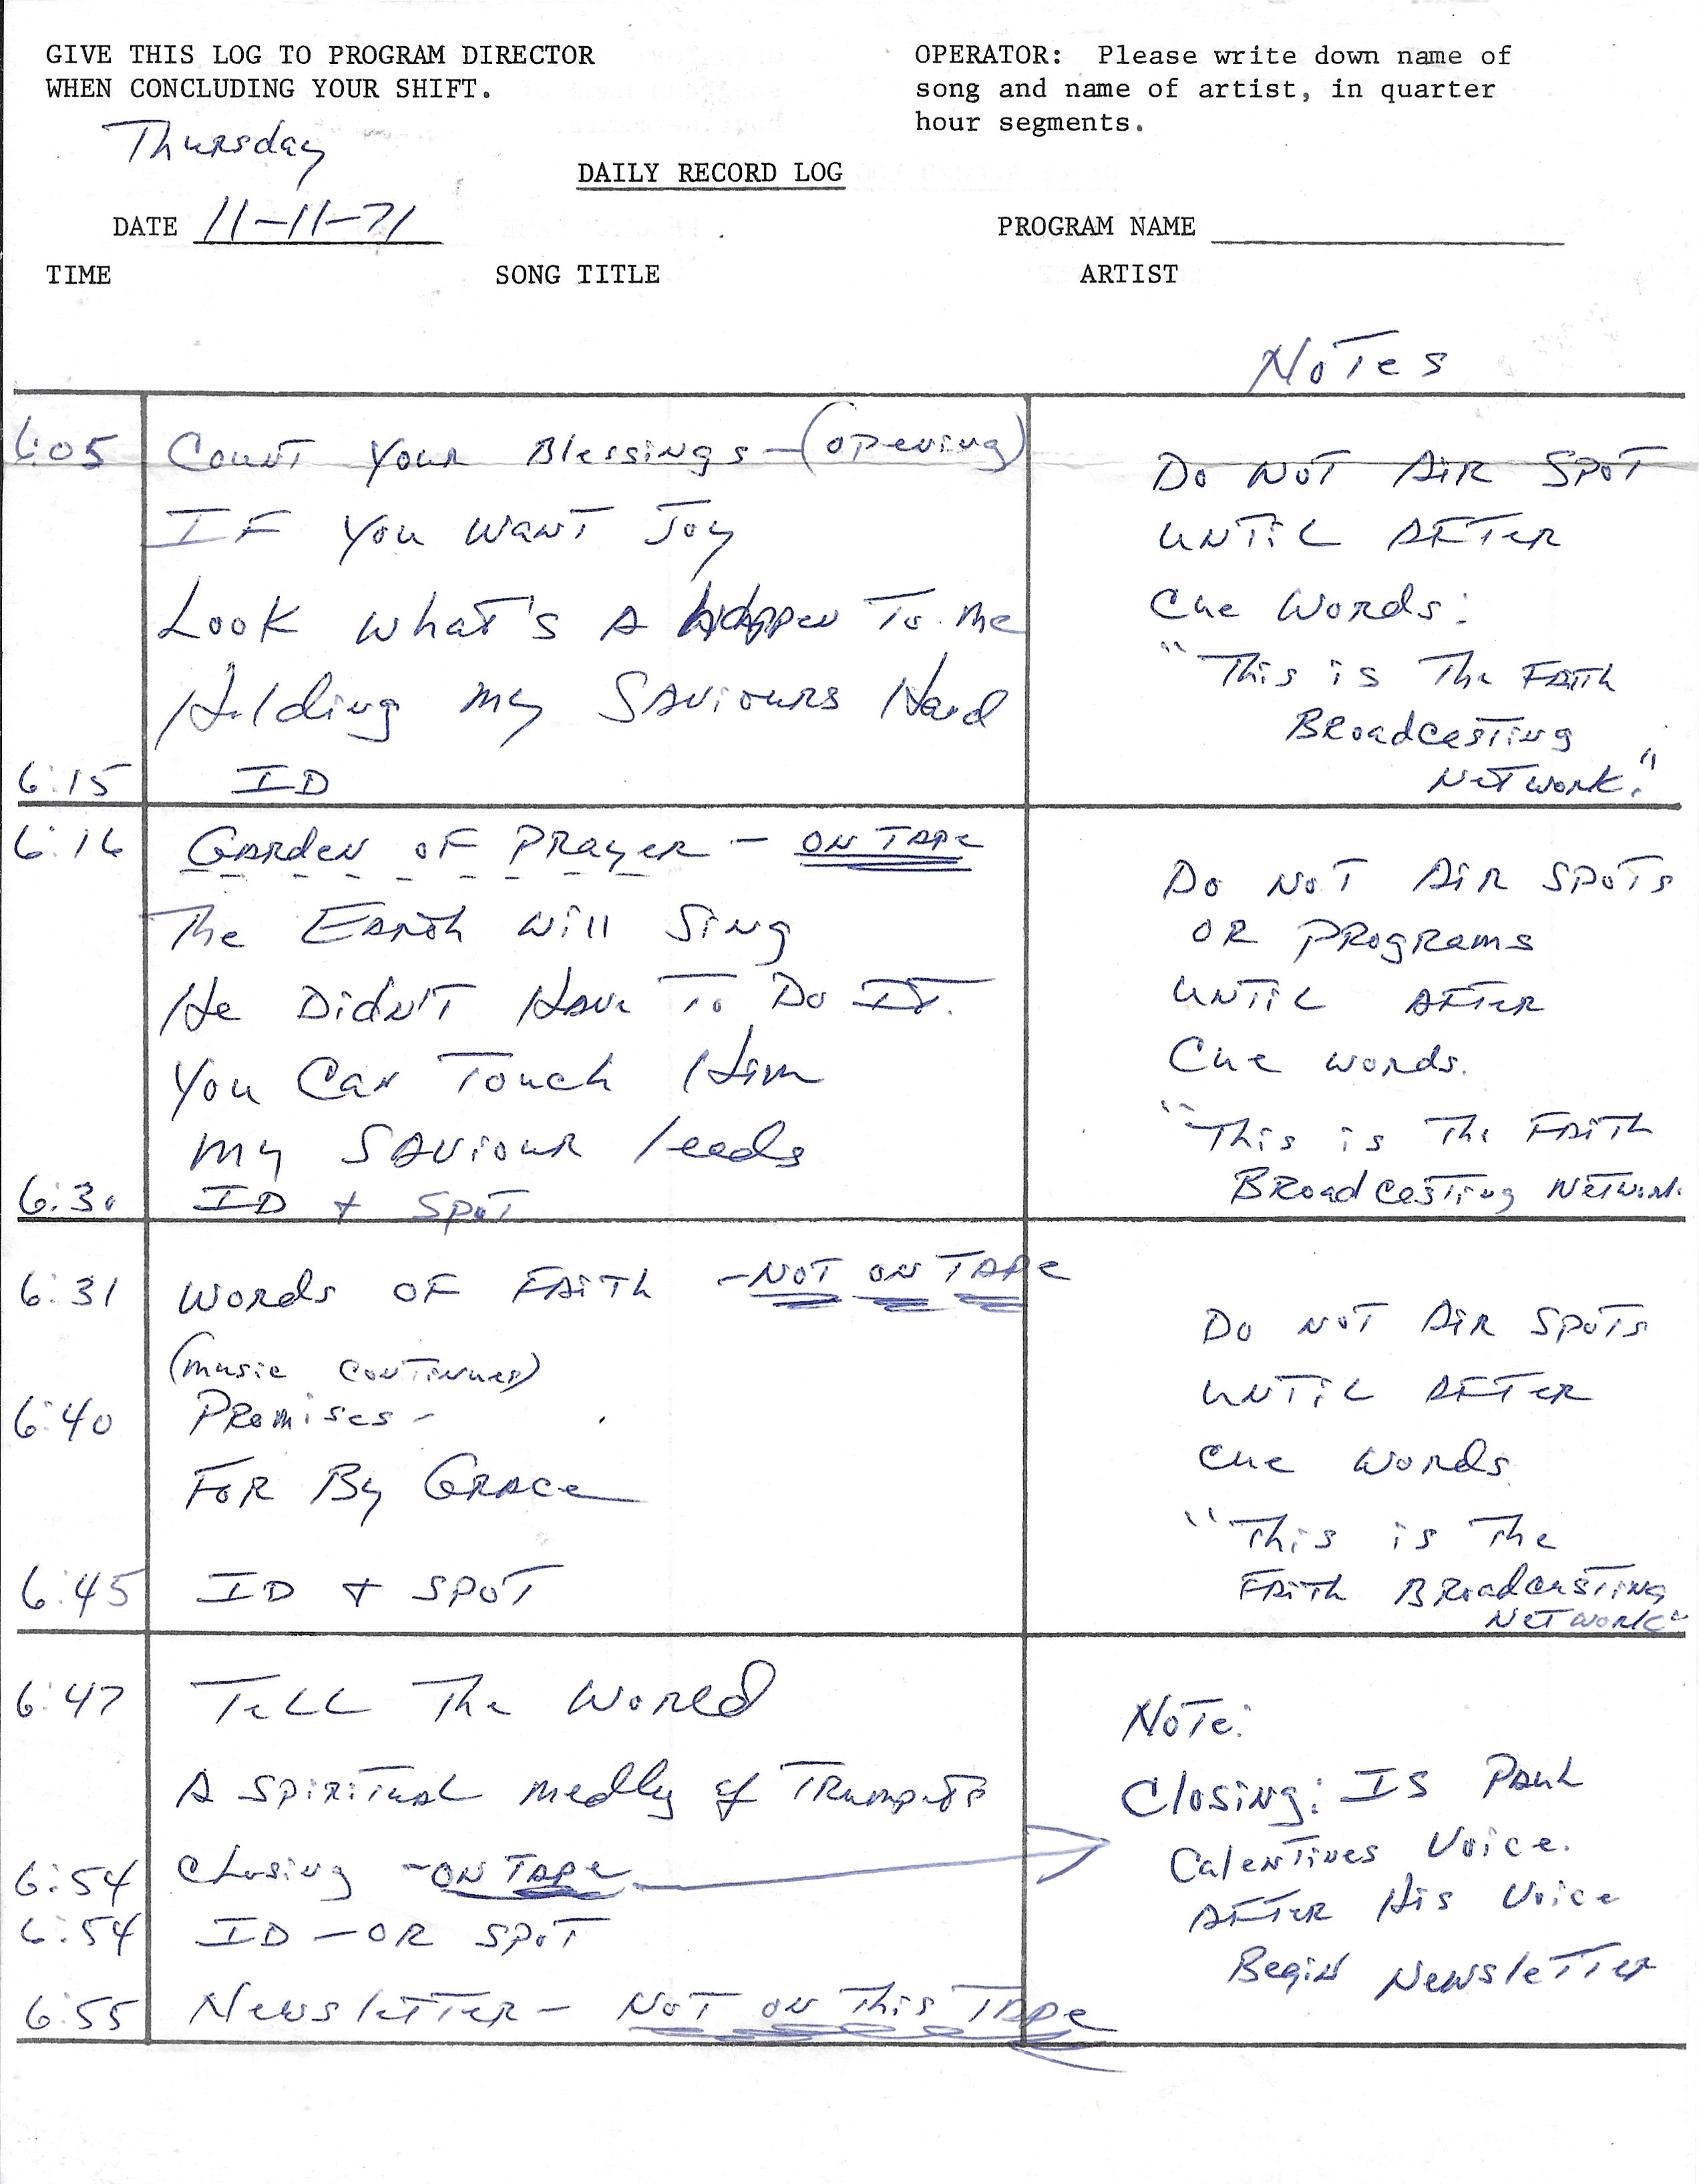 GIVE THIS LOG TO PROGRAM DIRECTOR
WHEN CONCLUDING YOUR SHIFT.
OPERATOR: Please write down name of
song and name of artist, in quarter
hour segments.
Thursday
DAILY RECORD LOG
DATE 11-11-71
PROGRAM NAME
TIME SONG TITLE ARTIST
Notes
6:05 Count Your Blessings - (opening)
IF You Want Joy
Look What's A Happen To Me
Holding My Saviours Hand
6:15 ID
Do Not Air Spot
Until After
Cue Words:
"This is The Faith
Broadcasting
Network."
6:16 Garden of Prayer - ON TAPE
The Earth Will Sing
He Didn't Have To Do IT.
You Can Touch Him
My Saviour leads
6:30 ID + SPOT
Do Not Air Spots
OR Programs
Until After
Cue words.
"This is The Faith
Broadcasting Network.
6:31 Words of Faith - NOT ON TAPE
(music continues)
6:40 Promises -
For By Grace
6:45 ID + SPOT
Do Not Air Spots
Until After
Cue Words
"This is The
Faith Broadcasting
Network"
6:47 Tell The World
A Spiritual Medly of Trumpets
6:54 Closing - ON TAPE
6:54 ID - OR SPOT
6:55 Newsletter - NOT ON This TAPE
Note:
Closing: IS Paul
Calentines Voice.
After His Voice
Begin Newsletter